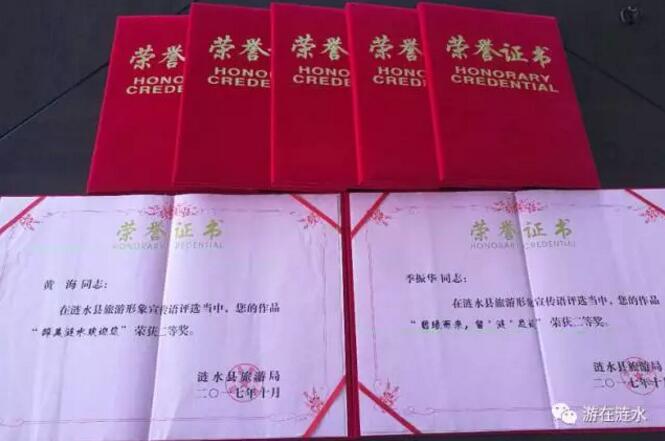 荣誉证
HONOR
CREDE
荣誉证
HONORA
CREDEN
荣誉证
HONORA
CREDEN
荣誉证
HONORAR
CREDENT
荣誉证书
HONORARY
CREDENTIAL
荣誉证书
HONORARY CREDENTIAL
黄 海 同志:
在涟水县旅游形象宣传语评选当中,您的作品
“醉美涟水欢迎您”荣获二等奖。
涟水县旅游局
二〇一七年十月
荣誉证书
HONORARY CREDENTIAL
季振华 同志:
在涟水县旅游形象宣传语评选当中,您的作品
荣获二等奖。
涟水县旅游局
二〇一七年十月
游在涟水